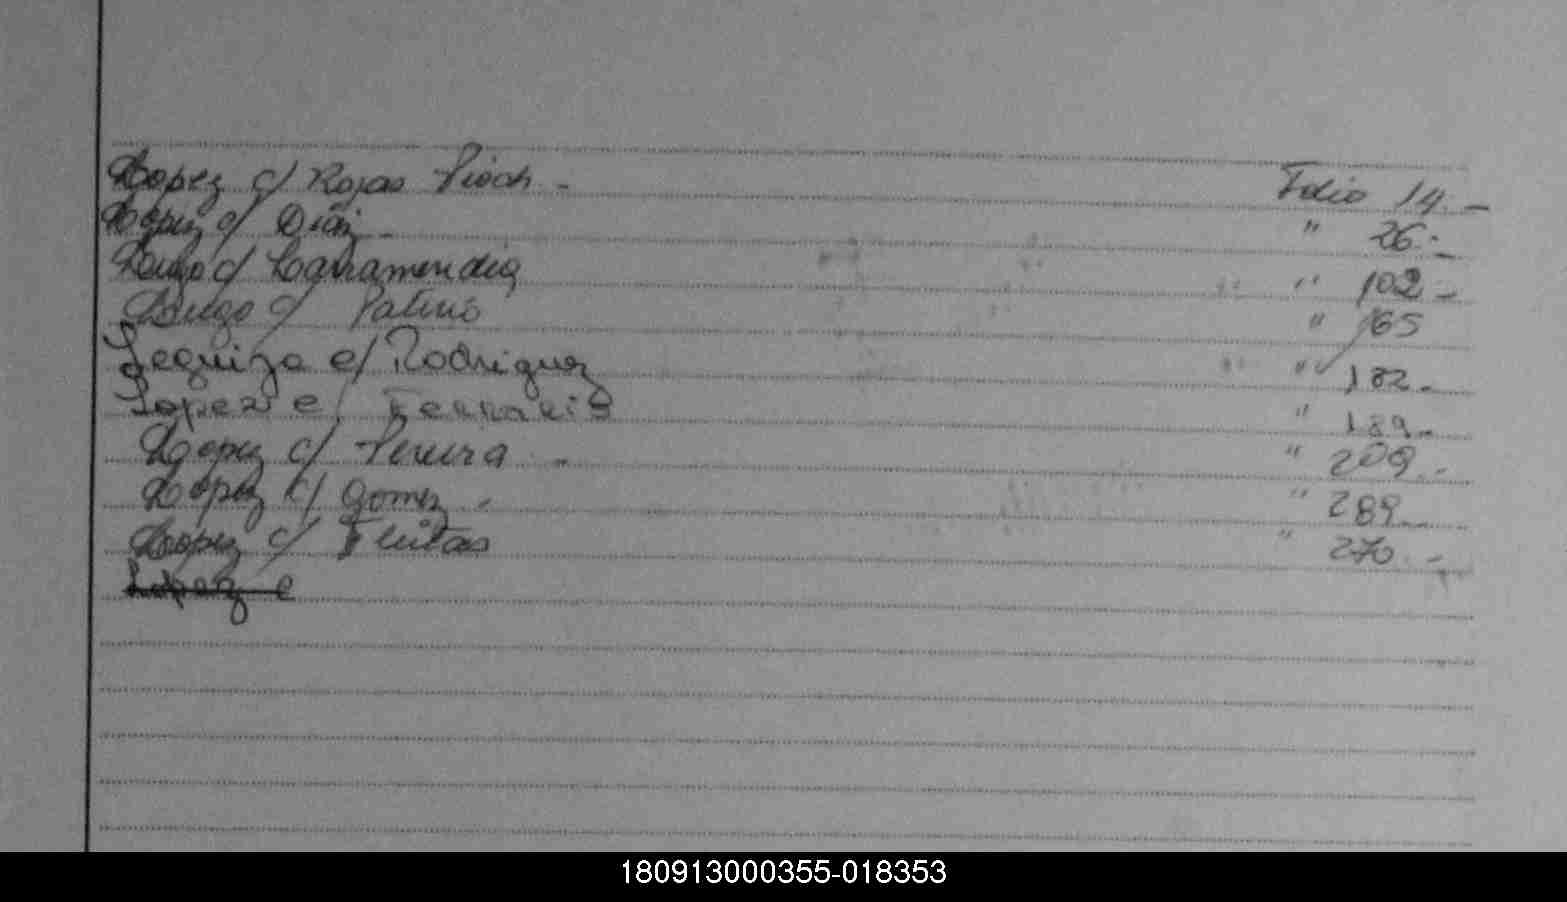 Lopez c/ Rojas Pioch - Folio 14.-
Lopez c/ Diaz - " 26.-
Lugo c/ Larramendia " 102-
Lugo c/ Patiño " 165
Leguiza c/ Rodriguez " 182-
Lopez c/ Ferraris " 189-
Lopez c/ Pereira - " 209.-
Lopez c/ Gomez - " 289
Lopez c/ Fleitas " 270.-
Lopez c
180913000355-018353